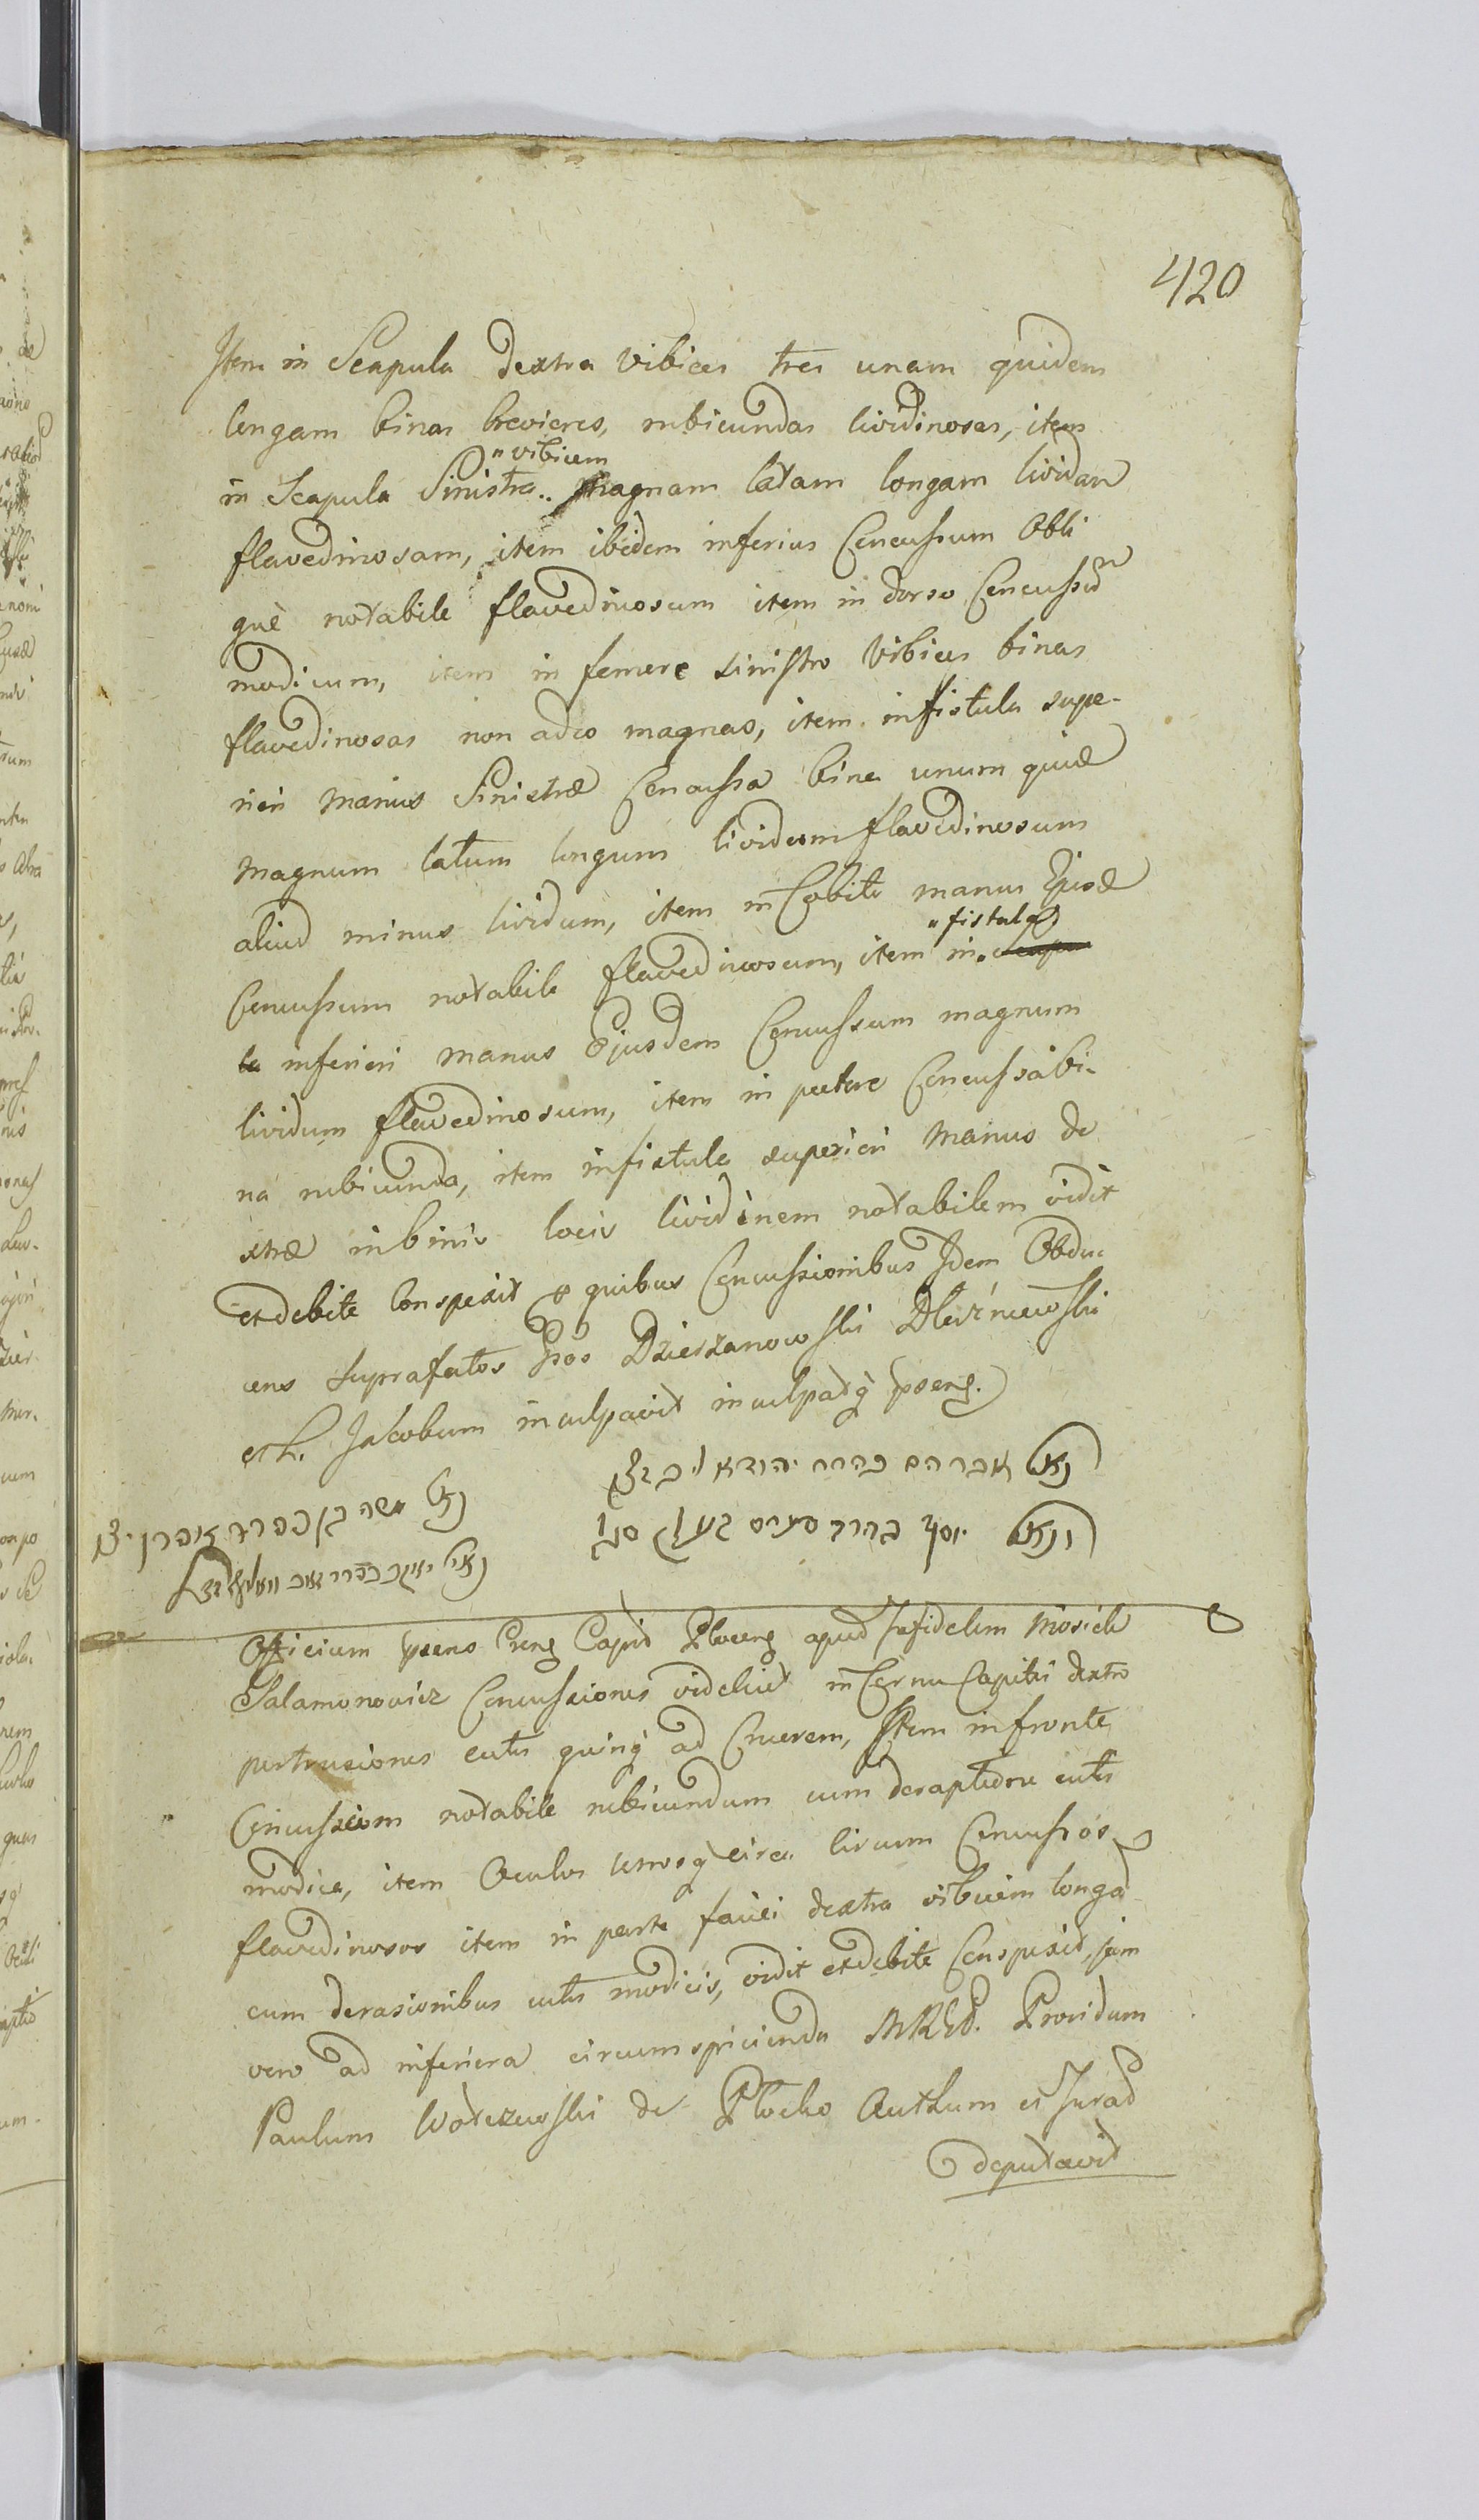 420
Item in Scapula dextra vibices tres unam quidem
longam binas breviores, rubicundas lividinosas, item
"vibicem
in Scapula Sinistra.. magnam latam longam lividam
flavedinosam, item ibidem inferius Concussum Obli
què notabile flavedinosum item in dorso Concussũ
modicum, item in femore sinistro Vibices binas
flavedinosas non adeo magnas, item in fistula supe-
riori manus Sinistræ Concussa bina unum quid
magnum latum longum lividum flavedinosum
aliud minus lividum, item in Cobito manus Ejusd
"fistula
Concussum notabile flavedinosum, item in
la inferiori manus Ejusdem Concussum magnum
lividum flavedinosum, item in pectore Concussa bi-
na rubicunda, item in fistula superiori manus de
xtræ in binis locis lividinem notabilem vidit
et debite Conspexit de quibus Concussionibus Idem Obdu-
cens Suprafatos Dzierzanowski Dłużniewski
et L. Jacobum inculpavit inculpatq̃ pseng.
נאם אברהם בהרר יהודא
ונאם יוסף בהרר
נאם משה בן
נאם יעקב בהרר
Officium psens Creng Capit Ploceng apud Infidelem Mosiek
Salamonowicz Concussiones videlicet in Cornu Capitis dextro
pertrusiones cutis quinq̃ ad Cruorem, Item in fronte
Concussum notabile rubicundum cum deraptione cutis
modica, item Oculos utrosq̃ circa Concussos
flavedinosos item in parte fauci dextra vibicem longã
cum derasionibus cutis modicis, vidit et debite Conspexit, jam
vero ad inferiora circumspicienda MRGD. Providum
Paulum Wołczewski de Płocko Authum et Jurad
deputavit